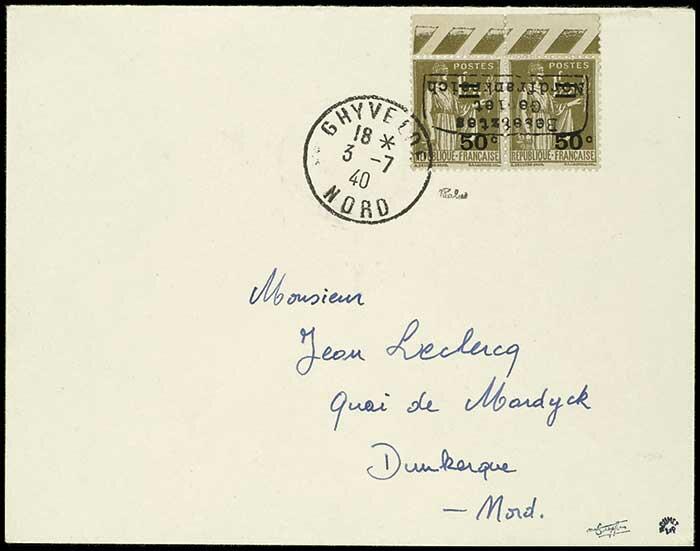 POSTES POSTES
Besetztes
Gebiet
Nordfrankreich
50c 50c
RÉPUBLIQUE·FRANÇAISE RÉPUBLIQUE·FRANÇAISE
GHYVELDE
18 *
3 -7
40
NORD
Monsieur
Jean Leclercq
Quai de Mardyck
Dunkerque
– Nord.